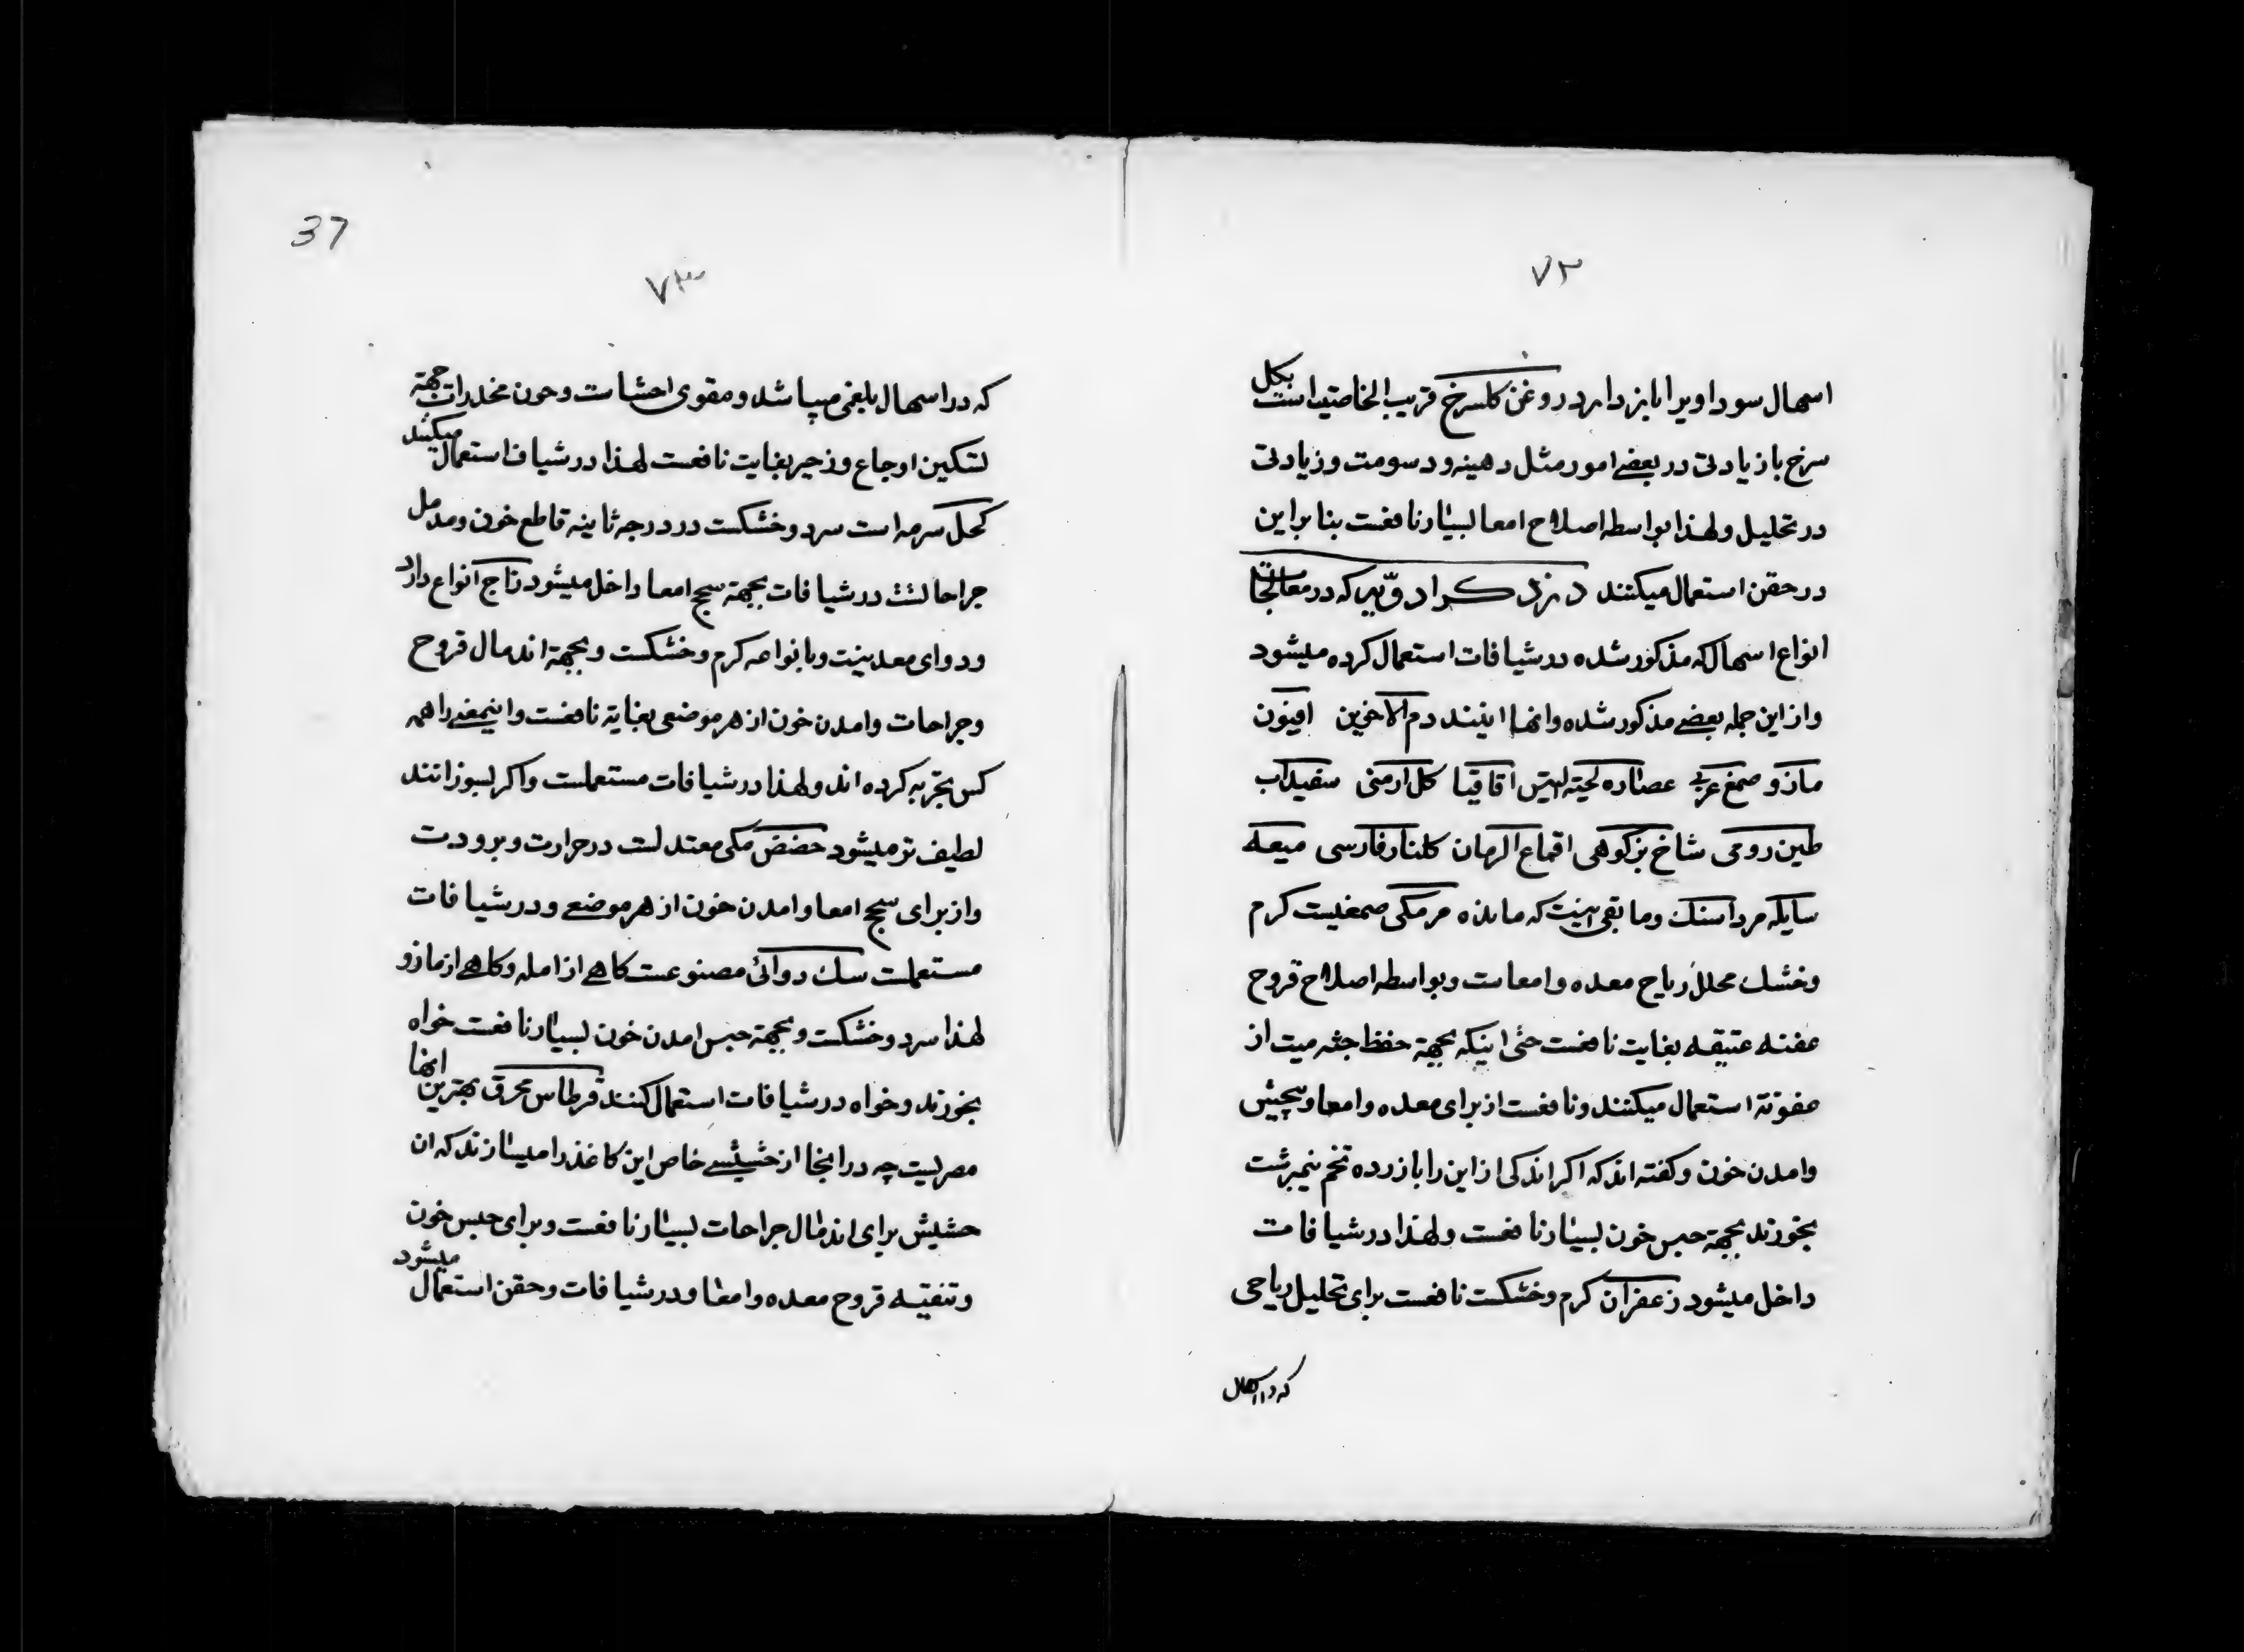 ۷۲
اسهال سوداویرا باز دارد روغن کلسرخ قریب الخاصیه است بکل
سرخ با زیادتی در بعضے امور مثل دهینه و دسومت و زیادتی
در تحلیل و لهذا بواسطه اصلاح امعا بسیار نافعست بنا براین
در حقن استعمال میکنند در ذکر ادویه که در معالجات
انواع اسهال که مذکور شده در شیافات استعمال کرده میشود
و از این جمله بعضے مذکور شده و انها اینند دم الاخوین افیون
مازو صمغ عربی عصاره لحیه التیس اقاقیا کل ارمنی سفیداب
طین رومی شاخ بزکوهی اقماع الرمان کلنار فارسی میعه
سایله مرداسنک و ما بقی اینست که مانده مر مکی صمغیست کرم
و خشک محلل ریاح معده و امعاست و بواسطه اصلاح قروح
عفنه عتیقه بغایت نافعست حتی اینکه بجهة حفظ جثه میت از
عفونة استعمال میکنند و نافعست از برای معده و امعا و پیچش
و امدن خون و کفته اند که اکر اندکی از این را با زرده تخم نیمبرشت
بخورند بجهة حبس خون بسیار نافعست و لهذا در شیافات
داخل میشود زعفران کرم و خشکست نافعست برای تحلیل ریاحی
که در اسهال
37
۷۳
که در اسهال بلغمی میباشد و مقوی احشاست و چون مخدرات جهة
تسکین اوجاع و زحیر بغایت نافعست لهذا در شیاف استعمال میکنند
کحل سرمه است سرد و خشکست در درجه ثانیه قاطع خون و مدمل
جراحاتست در شیافات بجهة سحج امعا داخل میشود زاج انواع دارد
و دوای معدینت و بانواعه کرم و خشکست و بجهة اندمال قروح
و جراحات و امدن خون از هر موضعی بغایة نافعست و اینمعنے را همه
کس تجربه کرده اند و لهذا در شیافات مستعملست و اکر بسوزانند
لطیف تر میشود حضض مکی معتدلست در حرارت و برودت
و از برای سحج امعا و امدن خون از هر موضعے و در شیافات
مستعملست سک دوائی مصنوعست کاهے از امله و کاهے از مازو
لهذا سرد و خشکست و بجهة حبس امدن خون بسیار نافعست خواه
بخورند و خواه در شیافات استعمال کنند قرطاس محرق بهترین انها
مصریست چه در انجا از حشیشے خاص این کاغذ را میسازند که ان
حشیش برای اندمال جراحات بسیار نافعست و برای حبس خون
و تنقیه قروح معده و امعا و در شیافات و حقن استعمال میشود